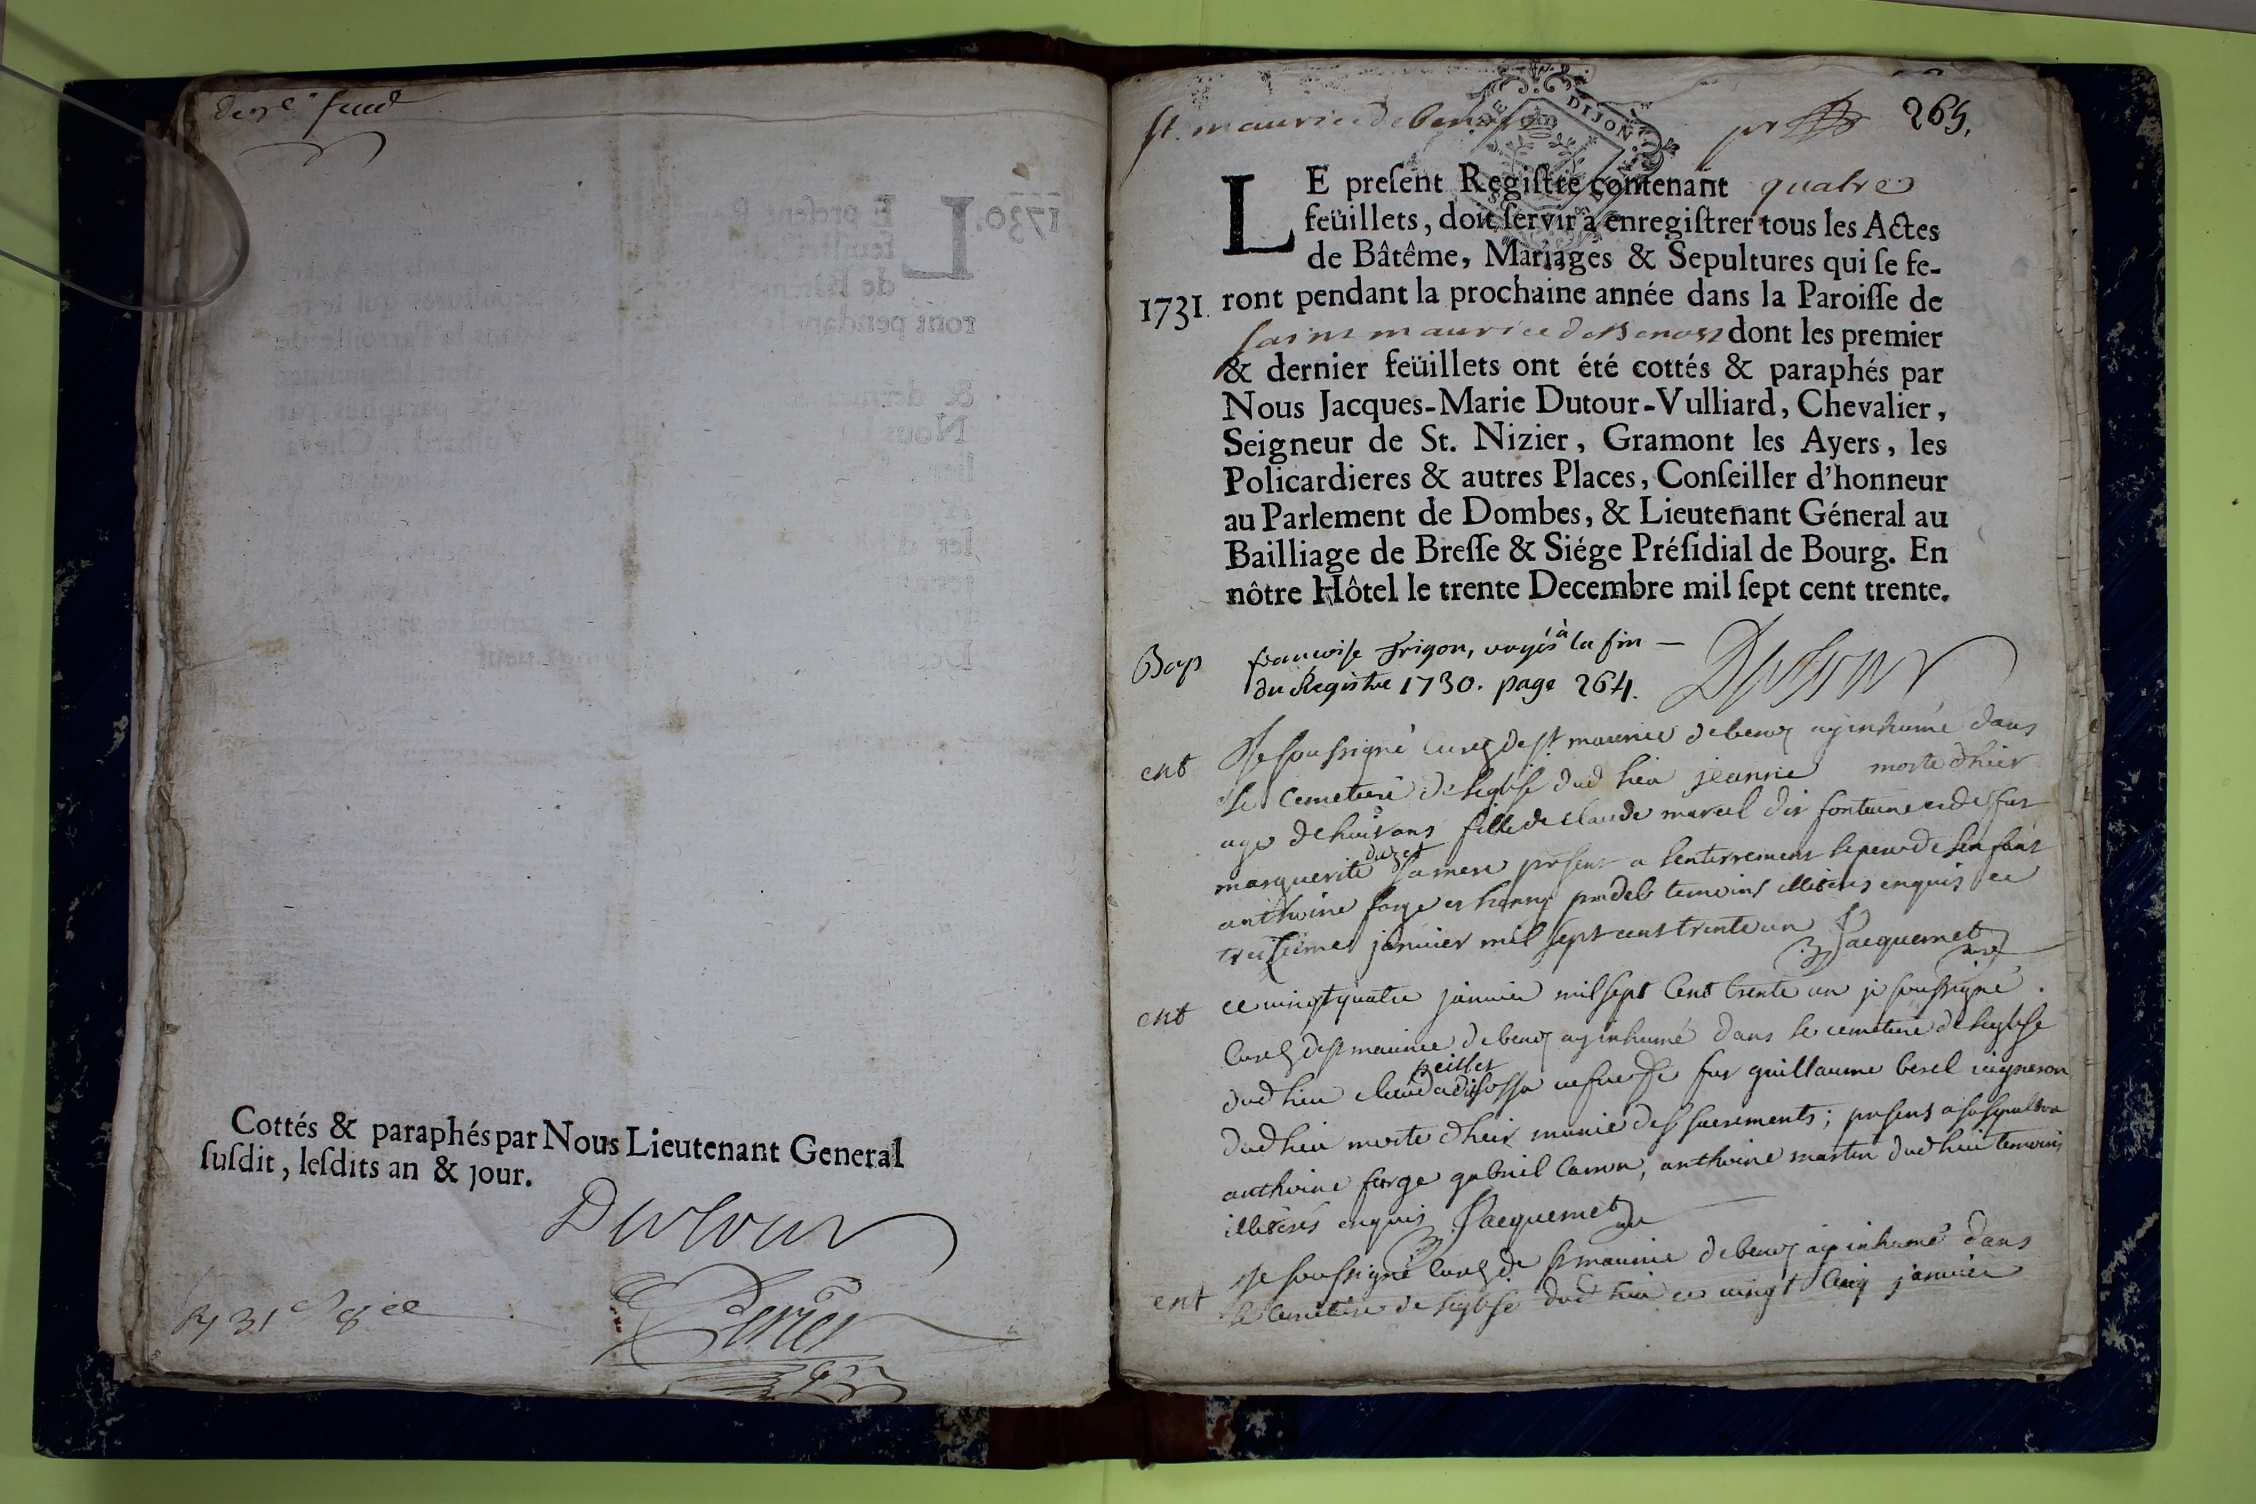 Cottés & paraphés par Nous Lieutenant General
ſuſdit, leſdits an & jour.
Dutour
Perier
St. maurice de
265.
DE DIJON
LE preſent Regiſtre contenant quatre
feüillets, doit ſervir à enregiſtrer tous les Actes
de Bâtême, Mariages & Sepultures qui ſe fe-
1731. ront pendant la prochaine année dans la Paroiſſe de
Saint maurice de Benost dont les premier
& dernier feüillets ont été cottés & paraphés par
Nous Jacques-Marie Dutour-Vulliard, Chevalier,
Seigneur de St. Nizier, Gramont les Ayers, les
Policardieres & autres Places, Conſeiller d'honneur
au Parlement de Dombes, & Lieutenant Géneral au
Bailliage de Breſſe & Siége Préſidial de Bourg. En
nôtre Hôtel le trente Decembre mil ſept cent trente.
Bap francoise Trigon, voyés à la fin
du Registre 1730. page 264.
Dutour
ent Je soussigné curé de st maurice de benost ay inhumé dans
le cemetiere de leglise dud lieu jeanne morte dhier
age de huit ans fille de claude marcel dit fontaine et de fut
marguerite sa mere présent a lenterrement le pere de lenfant
anthoine farge et temoins illiterés enquis ce
treisieme janvier mil sept cent trente un Jacquemet
ent ce vingt quatre janvier mil sept cent trente un je soussigné
curé de st maurice de benost ay inhumé dans le cemetiere de leglise
dud lieu clauda peillet vefve de fut guillaume berel vigneron
dud lieu morte dhier munie des sacrements; présens a sa sepulture
anthoine farge gabriel anthoine martin dud lieu temoins
illiterés enquis Jacquemet
ent Je soussigné curé de st maurice de benost ay inhumé dans
le cemetiere de leglise dud lieu ce vingt cinq janvier